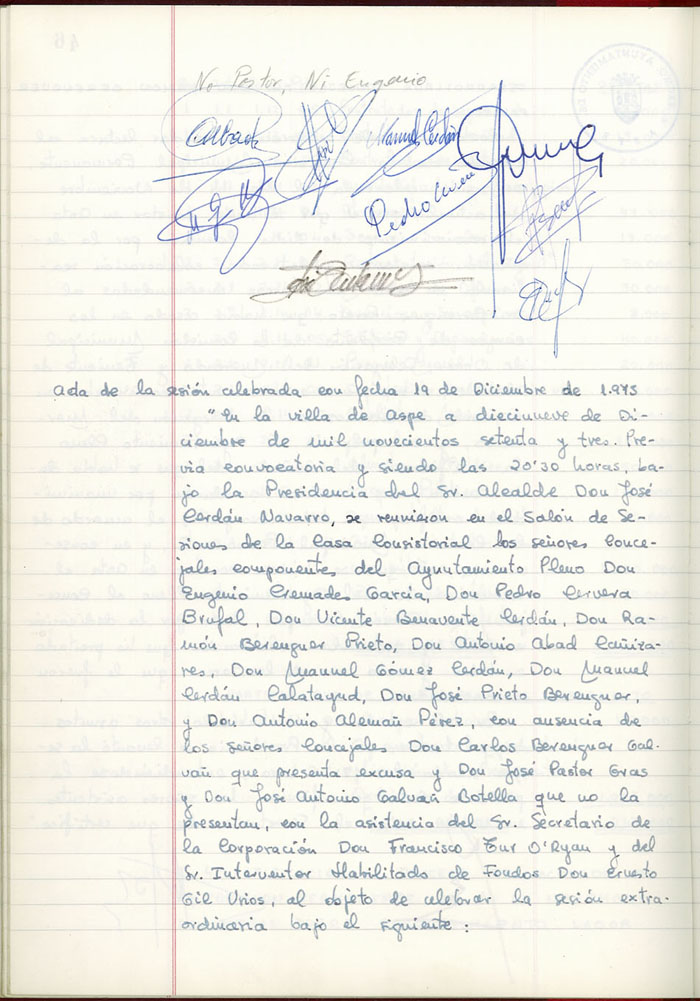 No Pastor, Ni Eugenio
Manuel Cerdán
Pedro
Acta de la sesión celebrada con fecha 19 de Diciembre de 1.973
"En la villa de Aspe a diecinueve de Di-
ciembre de mil novecientos setenta y tres. Pre-
via convocatoria y siendo las 20'30 horas, ba-
jo la Presidencia del Sr. Alcalde Don José
Cerdán Navarro, se reunieron en el Salón de Se-
siones de la Casa Consistorial los señores Conce-
jales componentes del Ayuntamiento Pleno Don
Eugenio Cremades García, Don Pedro Cervera
Brufal, Don Vicente Benavente Cerdán, Don Ra-
món Berenguer Prieto, Don Antonio Abad Cañiza-
res, Don Manuel Gómez Cerdán, Don Manuel
Cerdán Calatayud, Don José Prieto Berenguer,
y Don Antonio Alemañ Pérez, con ausencia de
los señores Concejales Don Carlos Berenguer Gal-
vañ que presenta excusa y Don José Pastor Gras
y Don José Antonio Galvañ Botella que no la
presentan, con la asistencia del Sr. Secretario de
la Corporación Don Francisco Tur O'Ryan y del
Sr. Interventor Habilitado de Fondos Don Ernesto
Gil Urios, al objeto de celebrar la sesión extra-
ordinaria bajo el siguiente: